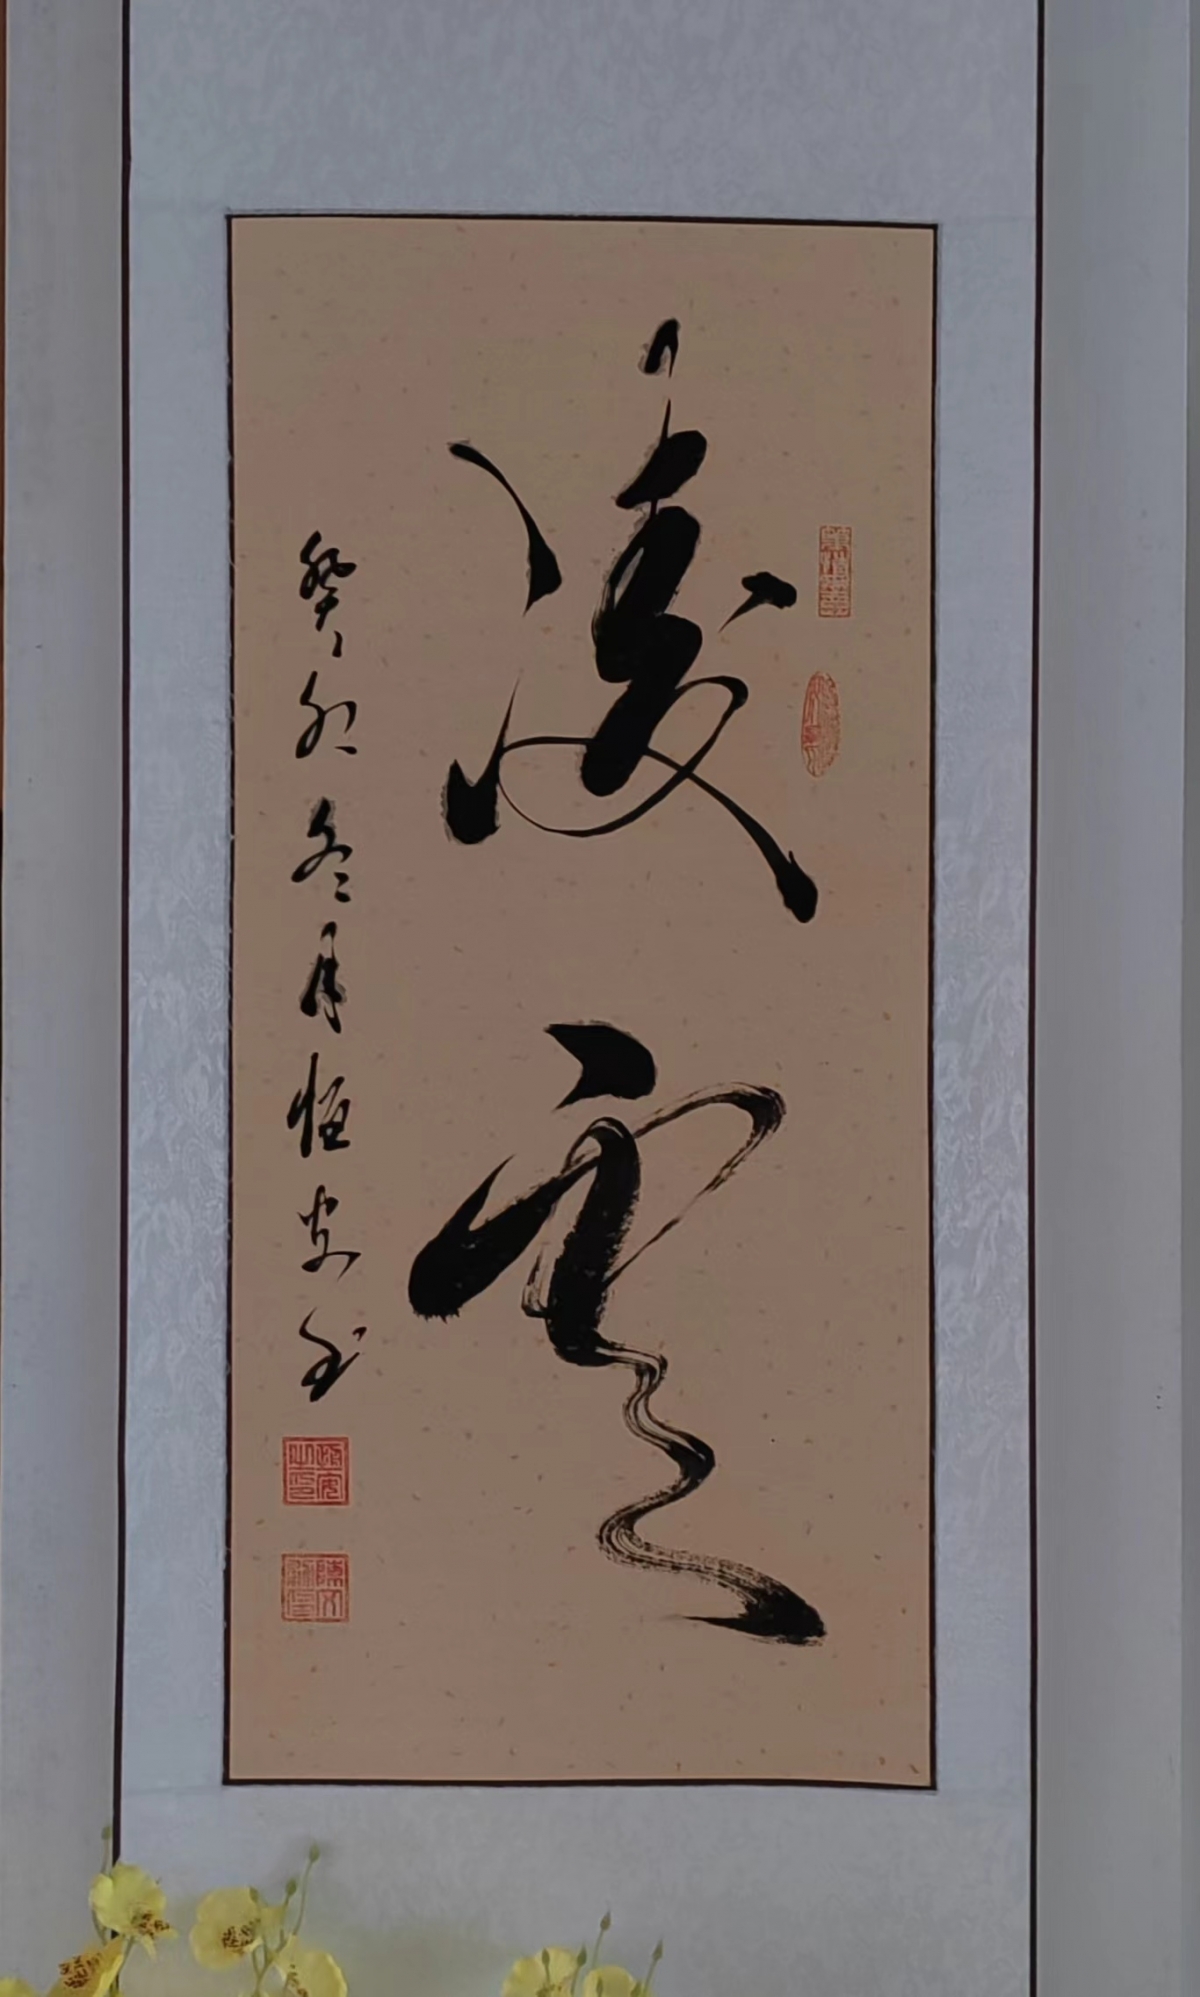 凌云
癸卯冬月恒安书